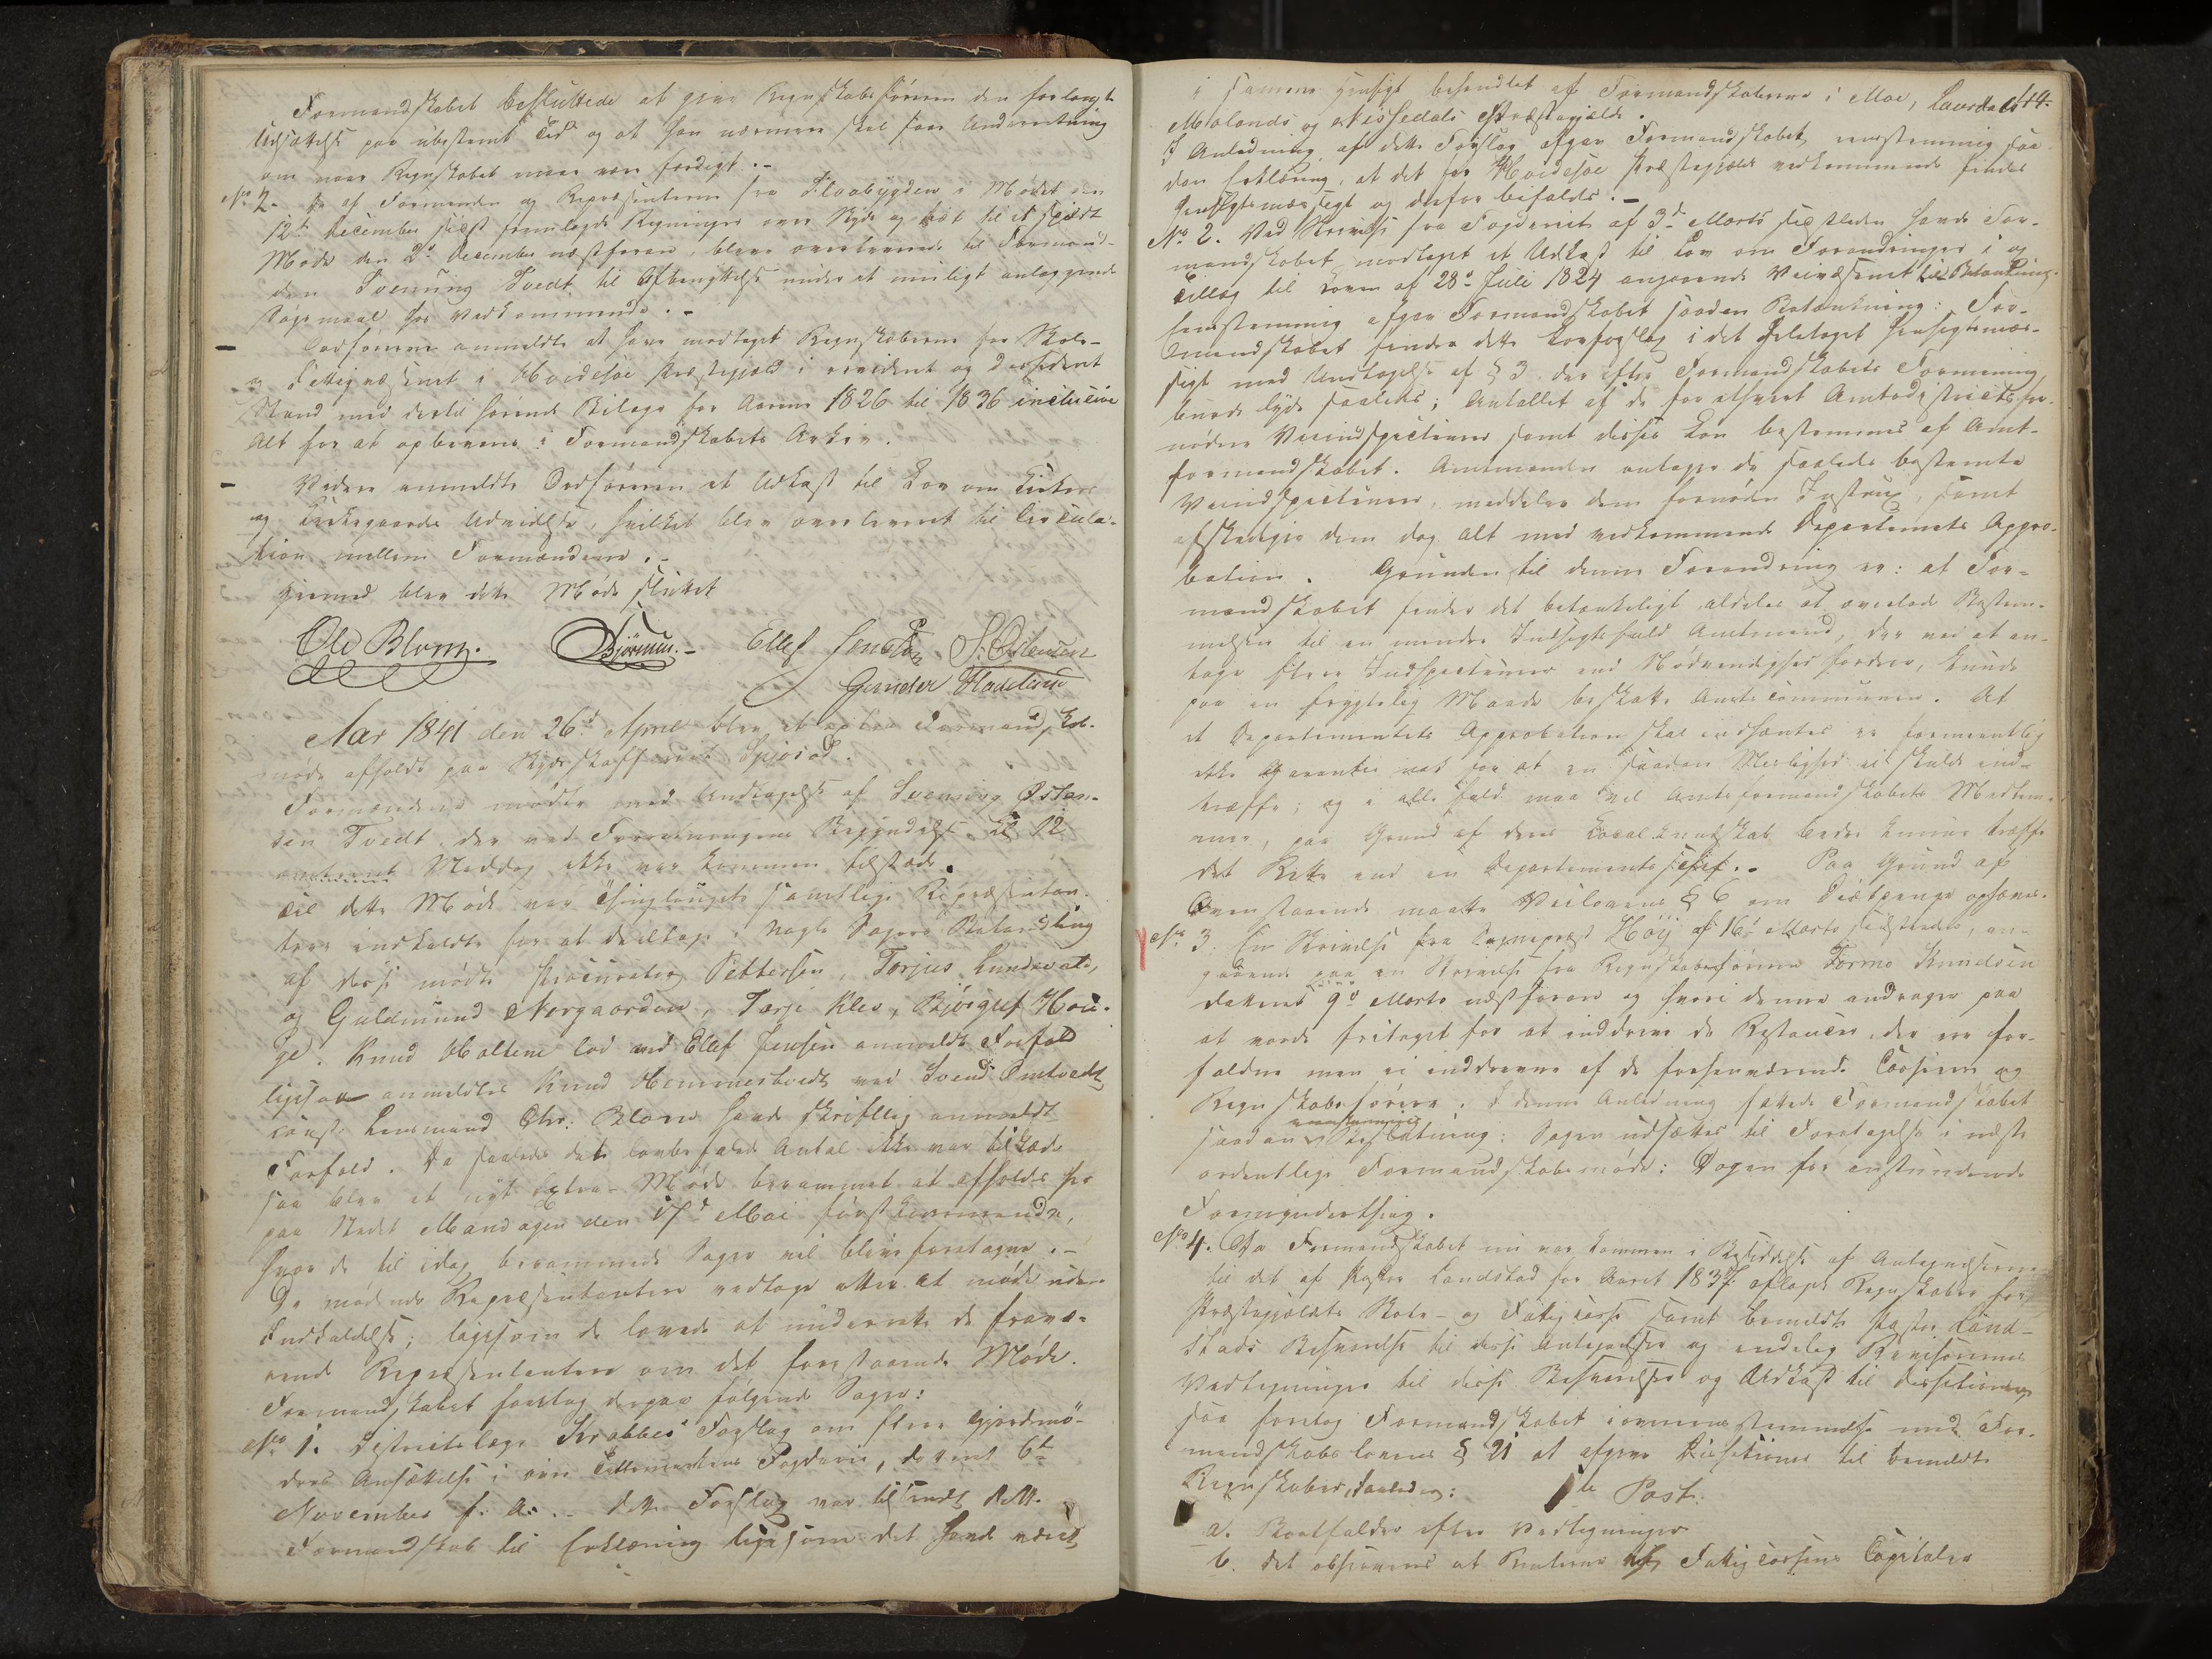 Formandskabet besluttede at give Regnskabsføreren den forlangte
Udsættelse paa ubestemt Tid og at han nærmere skal faae Underretning
om naar Regnskabet maa være færdigt.-
No 2. De af Formænden og Repræsentanterne fra Flaabygden i Mødet den
12te December sidst fremlagde Regninger over Skyds og til
Møde den 2den December næstforan, bleve overleverede til Formand-
den Svenung Tvedt til Afbenyttelse under et muligt anlæggende
Søgsmaal hos Vedkommende.-
- Ordføreren anmeldte at have modtaget Regnskaberne for Skole-
og Fattigvæsenet i Hvidesøe Præstegjeld i revideret og decideret
Stand med dertil hørende Bilage for Aarene 1826 til 1836 inclusive
Alt for at opbevares i Formandskabets Arkiv.
- Videre anmeldte Ordføreren et Udkast til Lov om Kirkers
og Kirkegaardes Udvidelse, hvilket blev overleveret til Circula-
tion mellem Formændene.-
Hermed blev dette Møde sluttet
Ole Blom. Bjørnsen.- Ellef Jensen S. Østensen
Gunder Fladeland
Aar 1841 den 26de April blev et extra Formandskabs-
møde afholdt paa Skydsskaffer
Formændene mødte med Undtagelse af Svenung Østen-
sen Tvedt, der ved Forretningens Begyndelse Kl 12
Middag ikke var kommen tilstæde.
Til dette Møde var Thinglaugets samtlige Repræsentan-
tere indkaldte for at deeltage i nogle Sagers Behandling
af disse mødte Procurator Pettersen, Torjus Lundevald,
og Guldmund Norgaarden, Tarje Klev, Bjørgulf Hovi-
ge. Knud Moltene lod ved Ellef Jensen anmelde Forfald
ligesom anmeldtes Knud Hemmestvedt ved Svend Omtvedt
const. Lensmand Chr. Blom havde skriftlig anmeldt
Forfald. Da saaledes det lovbefalede Antal ikke var tilstæde
saa blev et nyt extra-Møde berammet at afholdes her
paa Stedet Mandagen den 17de Mai førstkommende,
hvor de til idag berammede Sager vil blive foretagne.-
De mødende Repræsentantere vedtoge atter at møde uden
Indkaldelse; ligesom de lovede at underrette de fravæ-
rende Repræsentantere om det forestaaende Møde.
Formandskabet foretog derpaa følgende Sager:
No 1. Districtslæge Krabbes Forslag om flere Gjordemø-
dres Ansættelse i øvre Tellemarkens Fogderie, dateret 6te
November f. A.- Dette Forslag var tilsendt dette
Formandskab til Erklæring ligesom det havde været
114.
i samme Hensigt behandlet af Formandskaberne i Moe, Laurdals
Molands og Nissedals Præstegjælde.
I Anledning af dette Forslag afgav Formandskabet eenstemmig saa-
dan Erklæring, at det for Hvidesøe Præstegjæld vedkommende findes
hensigtsmæssigt og derfor bifaldes.-
No 2. Ved Skrivelse fra Fogderiet af 3de Marts sidstleden havde For-
mandskabet modtaget et Udkast til Lov om Forandringer i og
Tillæg til Loven af 28de Juli 1824 angaaende Veivæsenet til Betænkning.
Eenstemmig afgav Formandskabet saadan Betænkning: For-
mandskabet finder dette Lovforslag i det Heletaget hensigtsmæs-
sigt med Undtagelse af § 3 der efter Formandskabets Formening
burde lyde saaledes; Antallet af de for ethvert Amtsdistrict for-
nødne Veiinspecteurer samt disses Løn bestemmes af Amt-
formandskabet. Amtmanden antager de saaledes bestemte
Veiindspecteurer, meddeler dem fornøden Instrux, samt
afskediger dem dog Alt med vedkommende Departements Appro-
bation. Grunden til denne Forandring er: at For-
mandskabet finder det betænkeligt aldeles at overlade Bestem-
melsen til en mindre Indsigtsfuld Amtmand, der ved at an-
tage flere Indspecteurer end Nødvendighed fordrer, kunde
paa en frygtelig Maade beskatte Amtscommunen. At
et Departementets Approbation skal indhentes er formeentlig
ikke Garantie nok for at en saadan Muelighed ei skulde ind-
træffe; og i alle Fald maa vel Amtsformandskabets Medlem-
mer, paa Grund af deres Localkundskab bedre kunne træffe
det Rette end en Departementschef.- Paa Grund af
Ovenstaaende maatte Veilovens § 6 om Diætpenge ophæves.
No 3. En Skrivelse fra Sognepræst Høÿ af 16de Marts sidstleden, an-
gaaende paa en Skrivelse fra Regnskabsføreren Tormo Knudsen
dateret 9de Marts næstforan og hvori denne andrager paa
at vorde fritaget for at inddrive de Restancer der ere for-
faldne men ei inddrevne af de forhenværende Casserer og
Regnskabsførere. I denne Anledning fattede Formandskabet
saadan eenstemmig Beslutning: Sagen udsættes til Foretagelse i næste
ordentlige Formandskabsmøde: Dagen før anstundende
Formynderthing.
No 4. Da Formandskabet nu var kommen i Besiddelse af Antegnelserne
til det af Pastor Landstad for Aaret 1837 aflagte Regnskaber for
Præstegjældets Skole- og Fattigcasse samt bemeldte Pastor Land-
stads Besvarelse til disse Antegnelser og endelig Revisorernes
Vedtegninger til disse Besvarelser og Udkast til Decisioner,
saa foretog Formandskabet i overeensstemmelse med For-
mandskabslovens § 21 at afgive Decisioner til bemeldte
Regnskaber, saaledes: 1te Post.
a. Bortfalder efter Vedtegninger
b. Det observeres at Renterne af Fattigcassens Capitaler